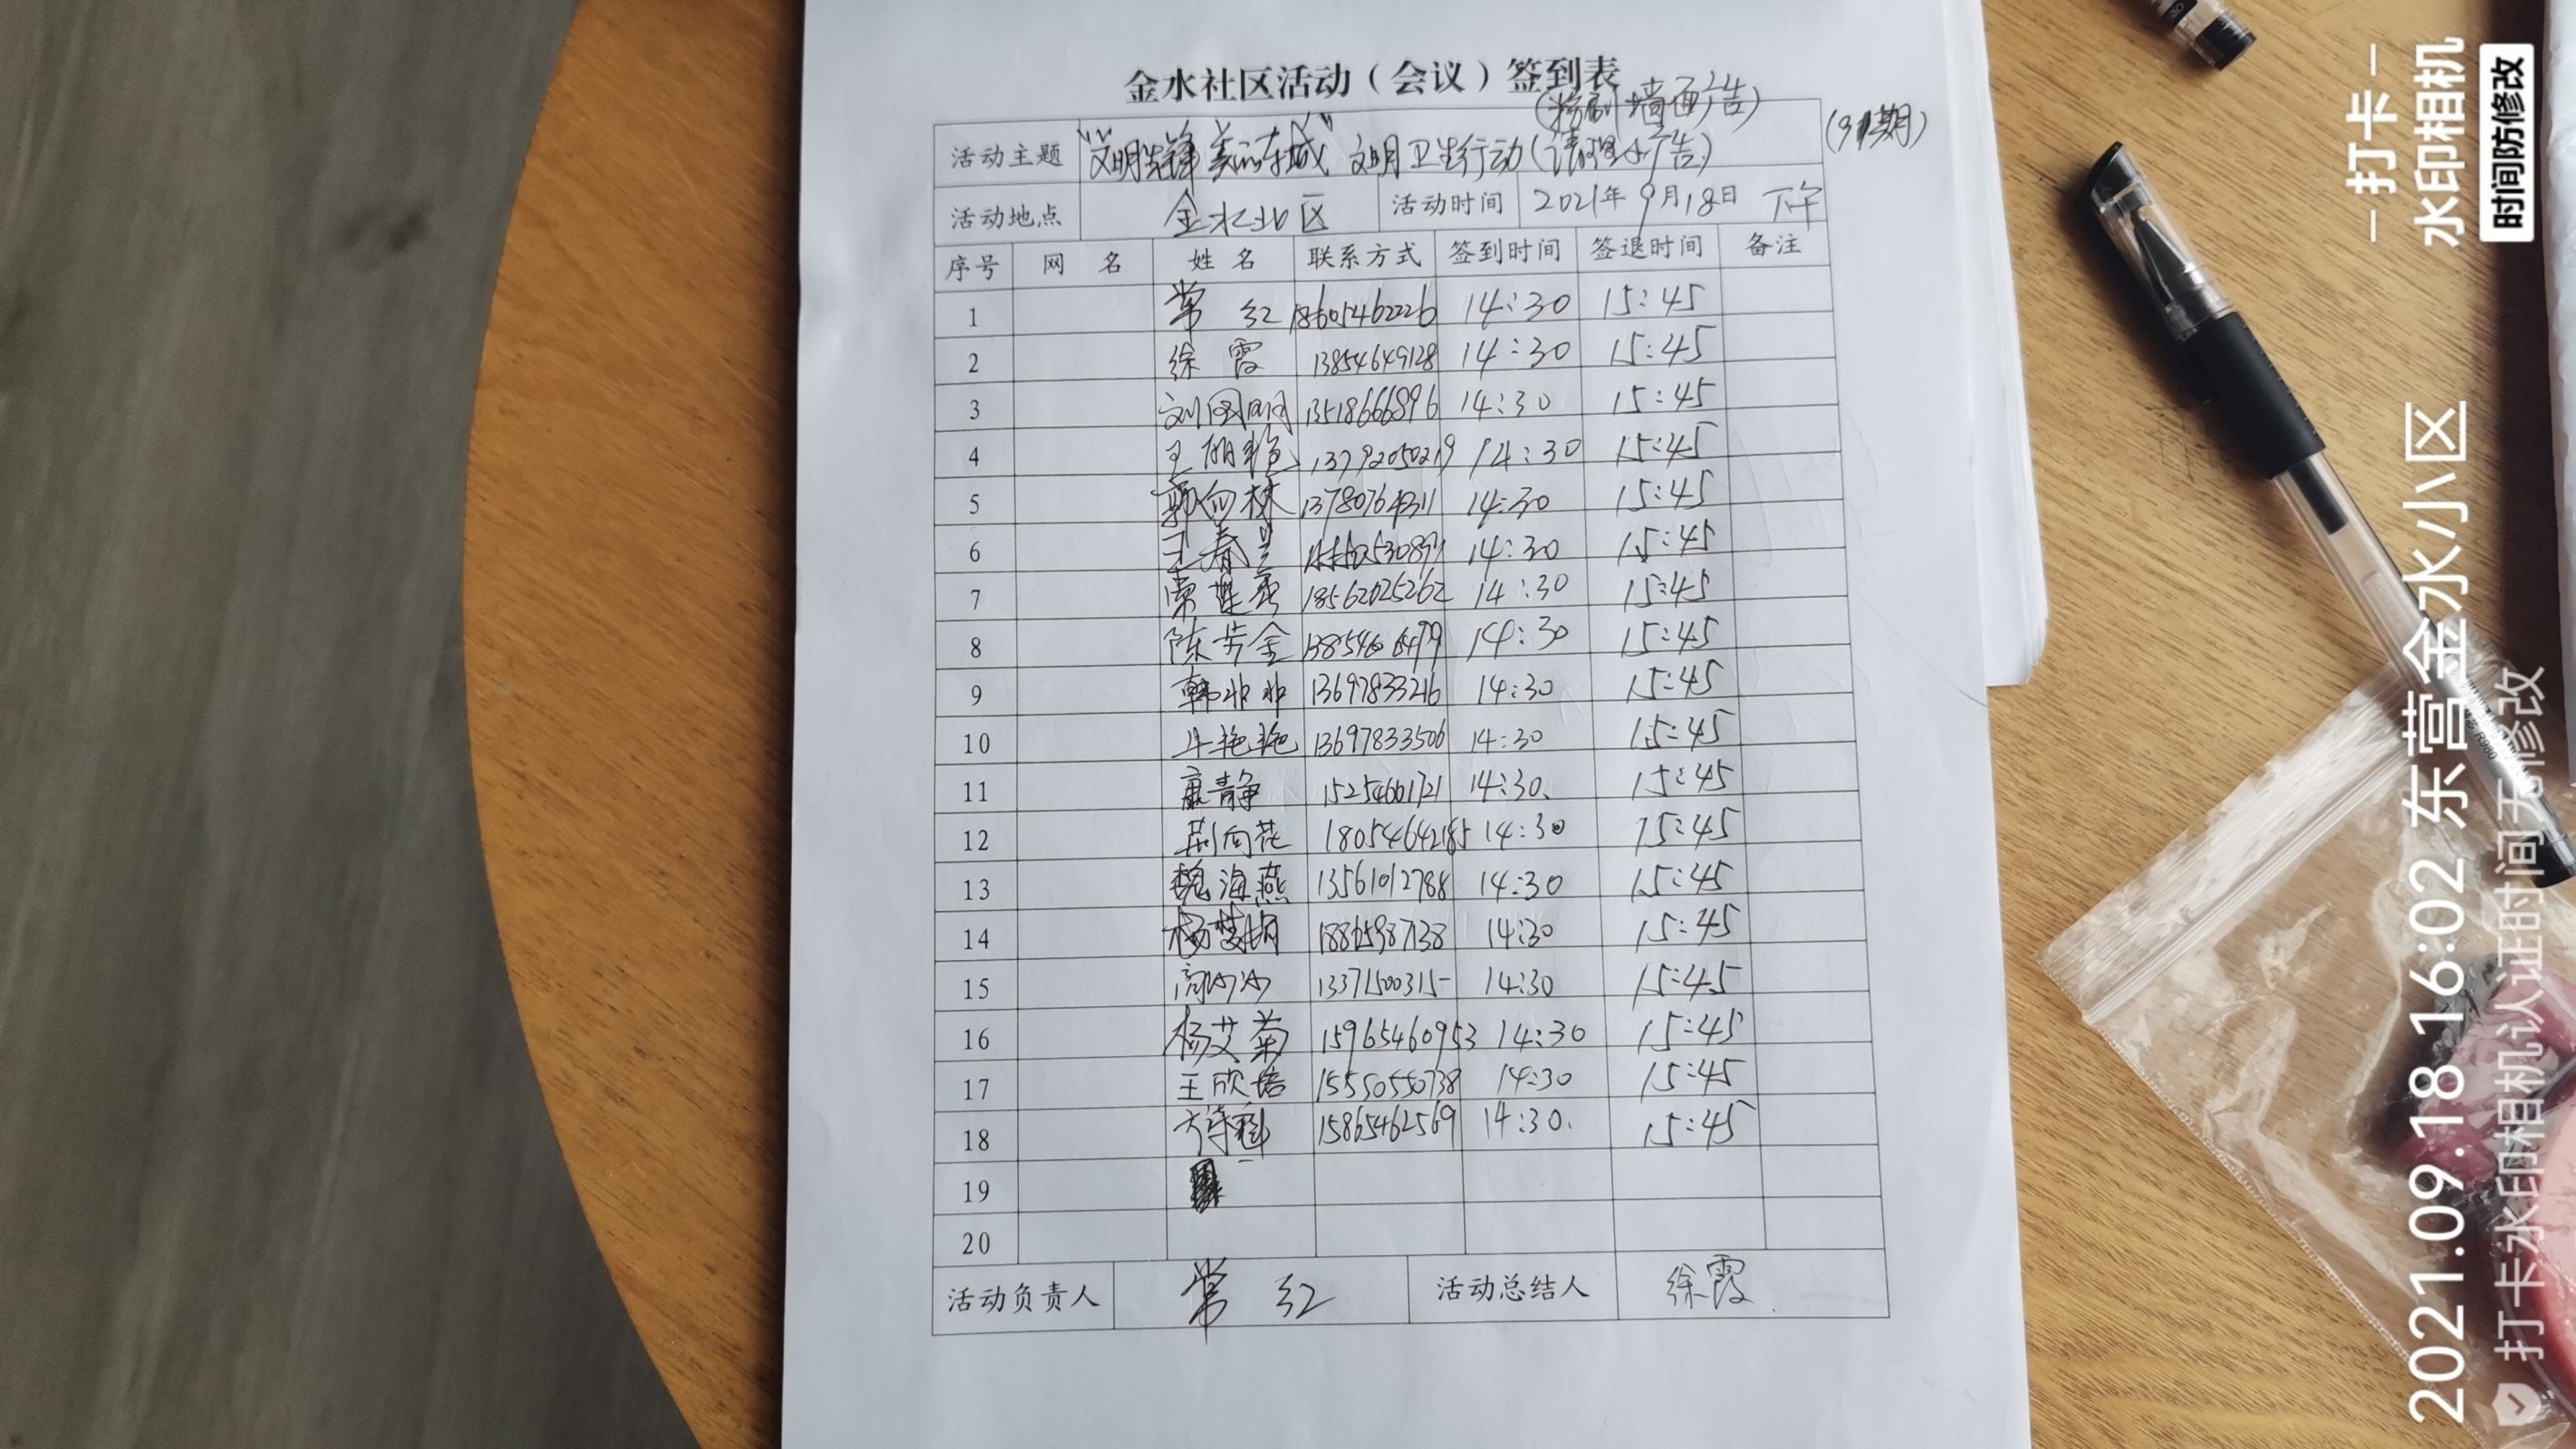 金水社区活动（会议）签到表
（粉刷墙面广告）
活动主题 "文明先锋 美丽东城" 文明卫生行动（清理小广告）
活动地点 金水北区 活动时间 2021年9月18日 下午
序号 网 名 姓 名 联系方式 签到时间 签退时间 备注
1 常 红 18605462226 14:30 15:45
2 徐 霞 13854649128 14:30 15:45
3 刘国明 13518666896 14:30 15:45
4 王丽艳 13792050219 14:30 15:45
5 郭向林 13780764311 14:30 15:45
6 王春兰 14:30 15:45
7 18562025262 14:30 15:45
8 陈芳金 14:30 15:45
9 韩非非 13697833216 14:30 15:45
10 牛艳艳 13697833506 14:30 15:45
11 康青静 15254661721 14:30 15:45
12 荆向花 18054642185 14:30 15:45
13 魏海燕 13561012788 14:30 15:45
14 杨梦娟 18865987138 14:30 15:45
15 高沙沙 13371500315 14:30 15:45
16 杨艾菊 15965460953 14:30 15:45
17 王欣培 15550550738 14:30 15:45
18 15865462569 14:30 15:45
19
20
活动负责人 常 红 活动总结人 徐霞
打卡
水印相机
时间防修改
2021.09.18 16:02 东营金水小区
打卡水印相机认证时间无修改